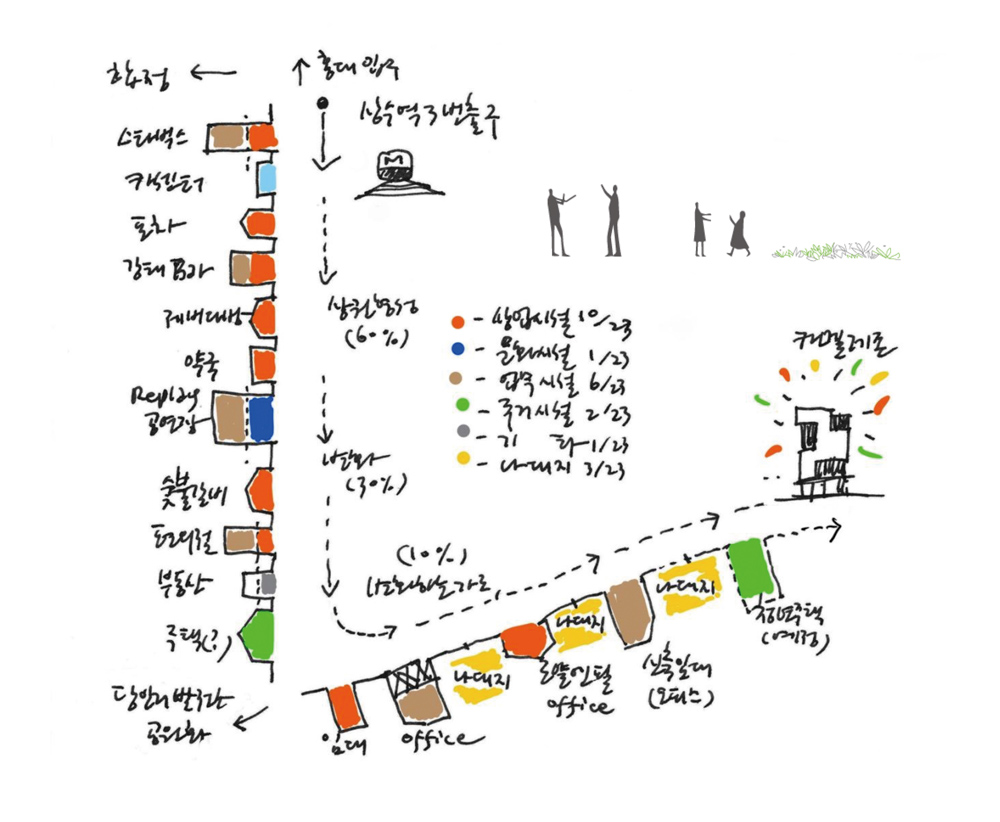 합정
홍대 입구
상수역 3번출구
M
스타벅스
카센터
포차
감태 B가
제버다생
약국
Replay
공연장
숯불갈비
부동산
주택(?)
당인리 발전소
공원화
상권형성
(60%)
변화
(30%)
(10%)
변화하는가로
- 상업시설 10/23
- 문화시설 1/23
- 업무시설 6/23
- 주거시설 2/23
- 기 타 1/23
- 나대지 3/23
임대
office
나대지
office
나대지
신축임대
(오피스)
나대지
청년주택
(예정)